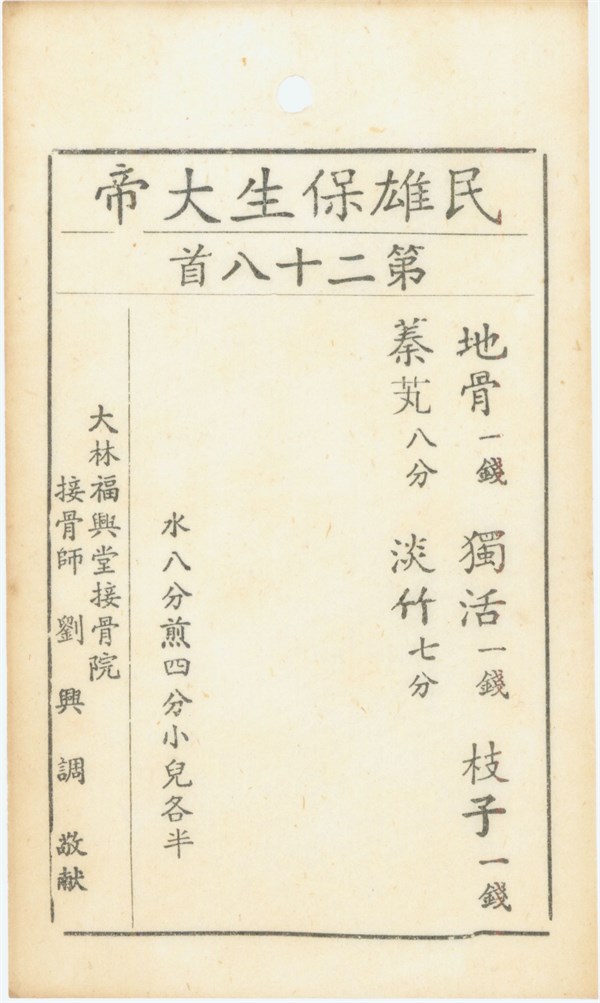 民雄保生大帝
第二十八首
地骨一錢　獨活一錢　枝子一錢
蓁芃八分　淡竹七分
水八分煎四分小兒各半
大林福興堂接骨院
接骨師　劉興調　敬献